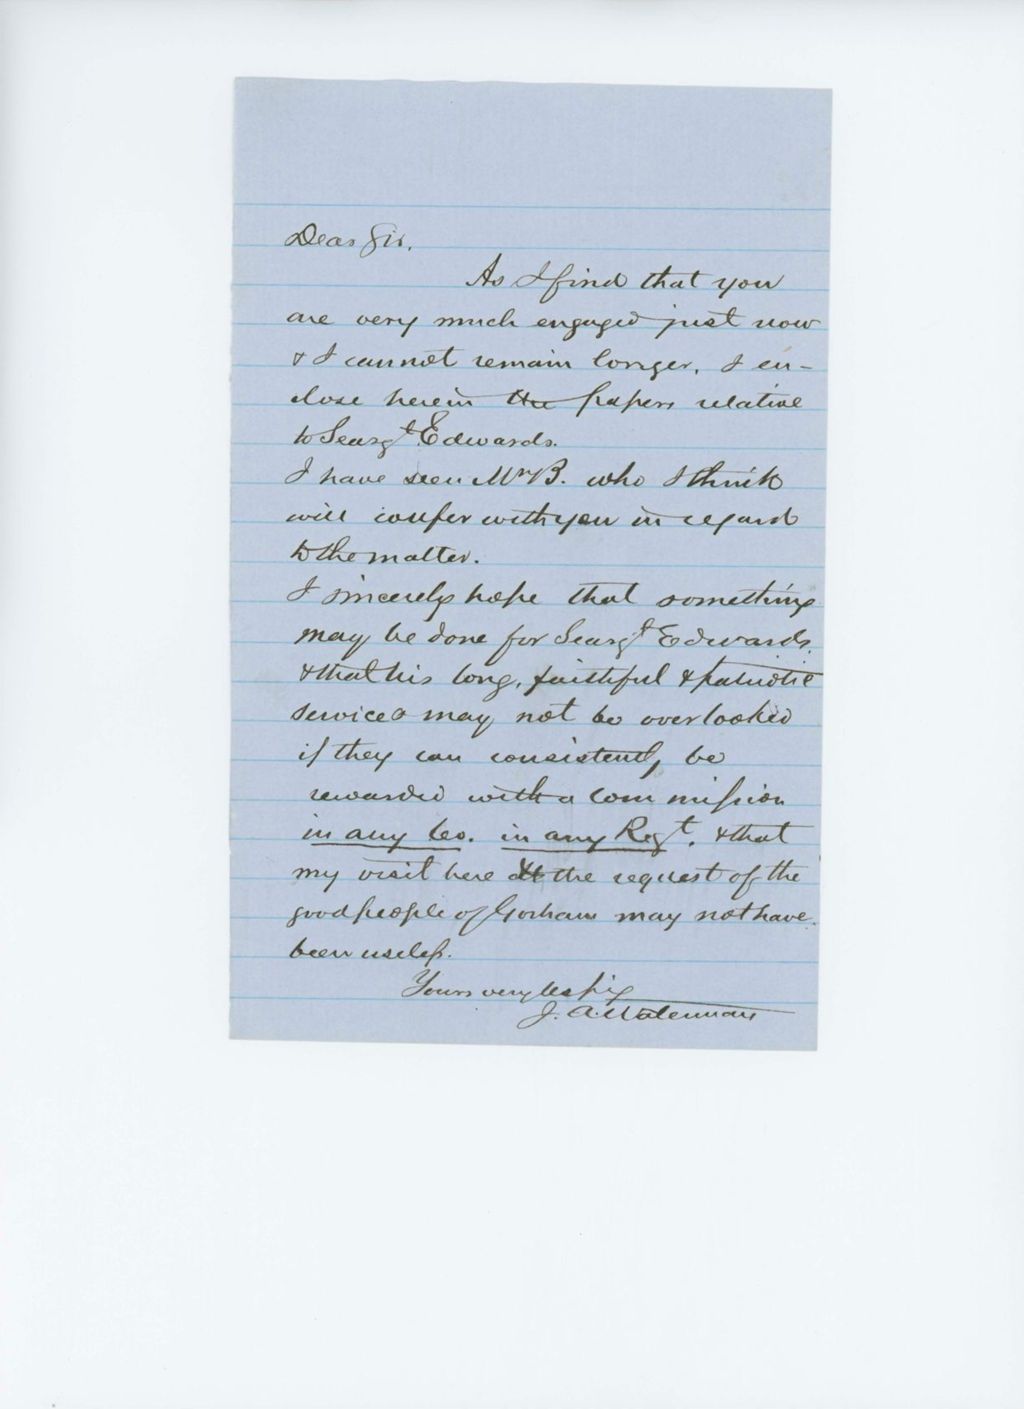 Dear Sir.
As I find that you
are very much engaged just now
& I cannot remain longer, I en-
close herein the papers relative
to Seargt Edwards.
I have seen Mr B. who I think
will confer with you in regard
to the matter.
I sincerely hope that something
may be done for Seargt Edwards,
& that his long, faithful & patriotic
services may not be overlooked
if they can consistently be
rewarded with a commission
in any Co. in any Regt. & that
my visit here at the request of the
good people of Gorham may not have
been useless.
Yours very respy
J. A. Waterman